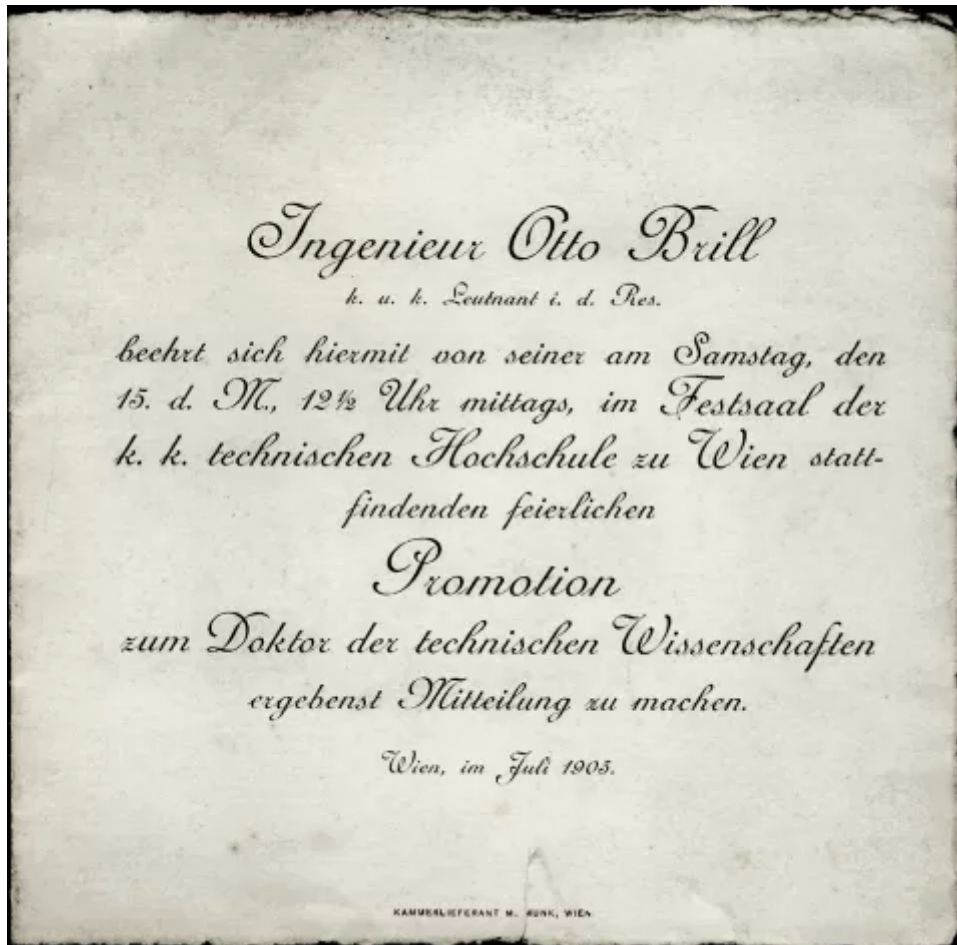 Ingenieur Otto Brill
k. u. k. Leutnant i. d. Res.
beehrt sich hiermit von seiner am Samstag, den
15. d. M., 12½ Uhr mittags, im Festsaal der
k. k. technischen Hochschule zu Wien statt-
findenden feierlichen
Promotion
zum Doktor der technischen Wissenschaften
ergebenst Mitteilung zu machen.
Wien, im Juli 1905.
KAMMERLIEFERANT M. MUNK, WIEN